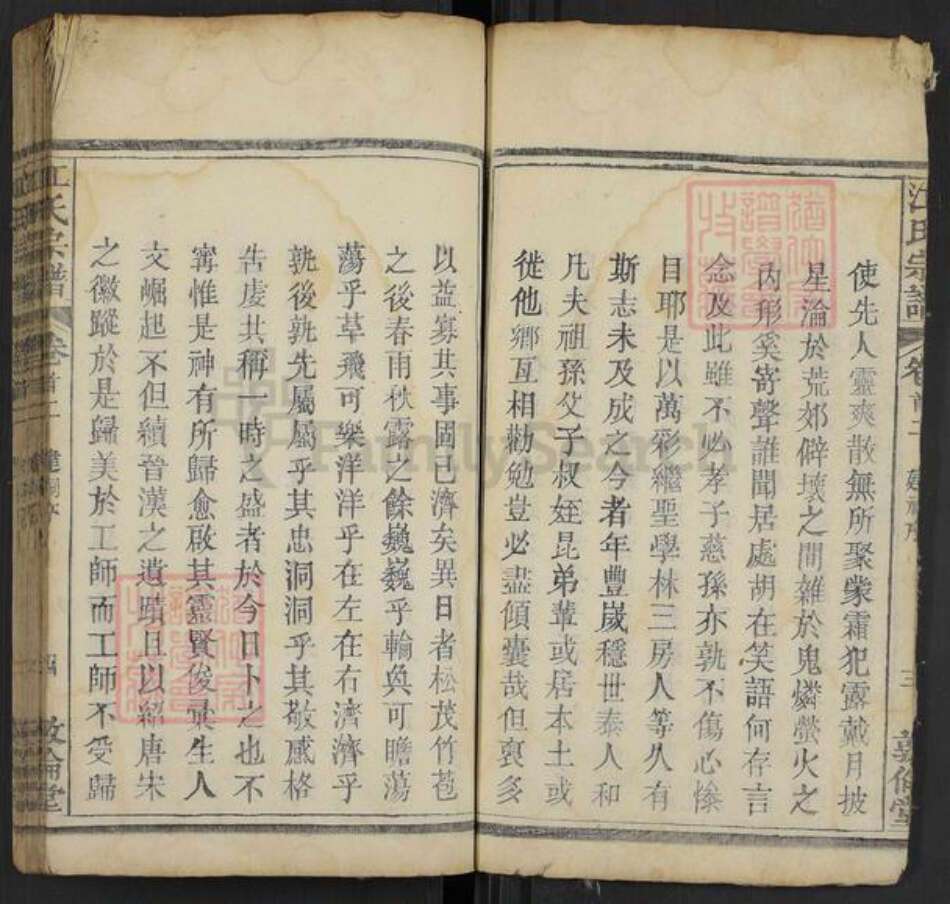 江氏宗譜
卷首二
建祠序
三
敦倫堂
使先人靈爽散無所聚蒙霜犯露戴月披
星淪於荒郊僻壞之間雜於鬼燐螢火之
內形奚寄聲誰聞居處胡在笑語何存言
念及此雖不必孝子慈孫亦孰不傷心慘
目耶是以萬彩繼聖學林三房人等久有
斯志未及成之今者年豐歲穩世泰人和
凡夫祖孫父子叔姪昆弟輩或居本土或
徙他鄉亙相勸勉豈必盡傾囊哉但裒多
以益寡其事固已濟矣異日者松茂竹苞
之後春雨秋露之餘巍巍乎輪奐可瞻蕩
蕩乎草飛可樂洋洋乎在左在右濟濟乎
孰後孰先屬屬乎其忠洞洞乎其敬感格
告虔共稱一時之盛者於今日卜之也不
寗惟是神有所歸愈啟其靈賢俊彚生人
文崛起不但續晉漢之遺蹟且以紹唐宋
之徽蹤於是歸美於工師而工師不受歸
江氏宗譜
卷首二
建祠序
四
敦倫堂
FamilySearch